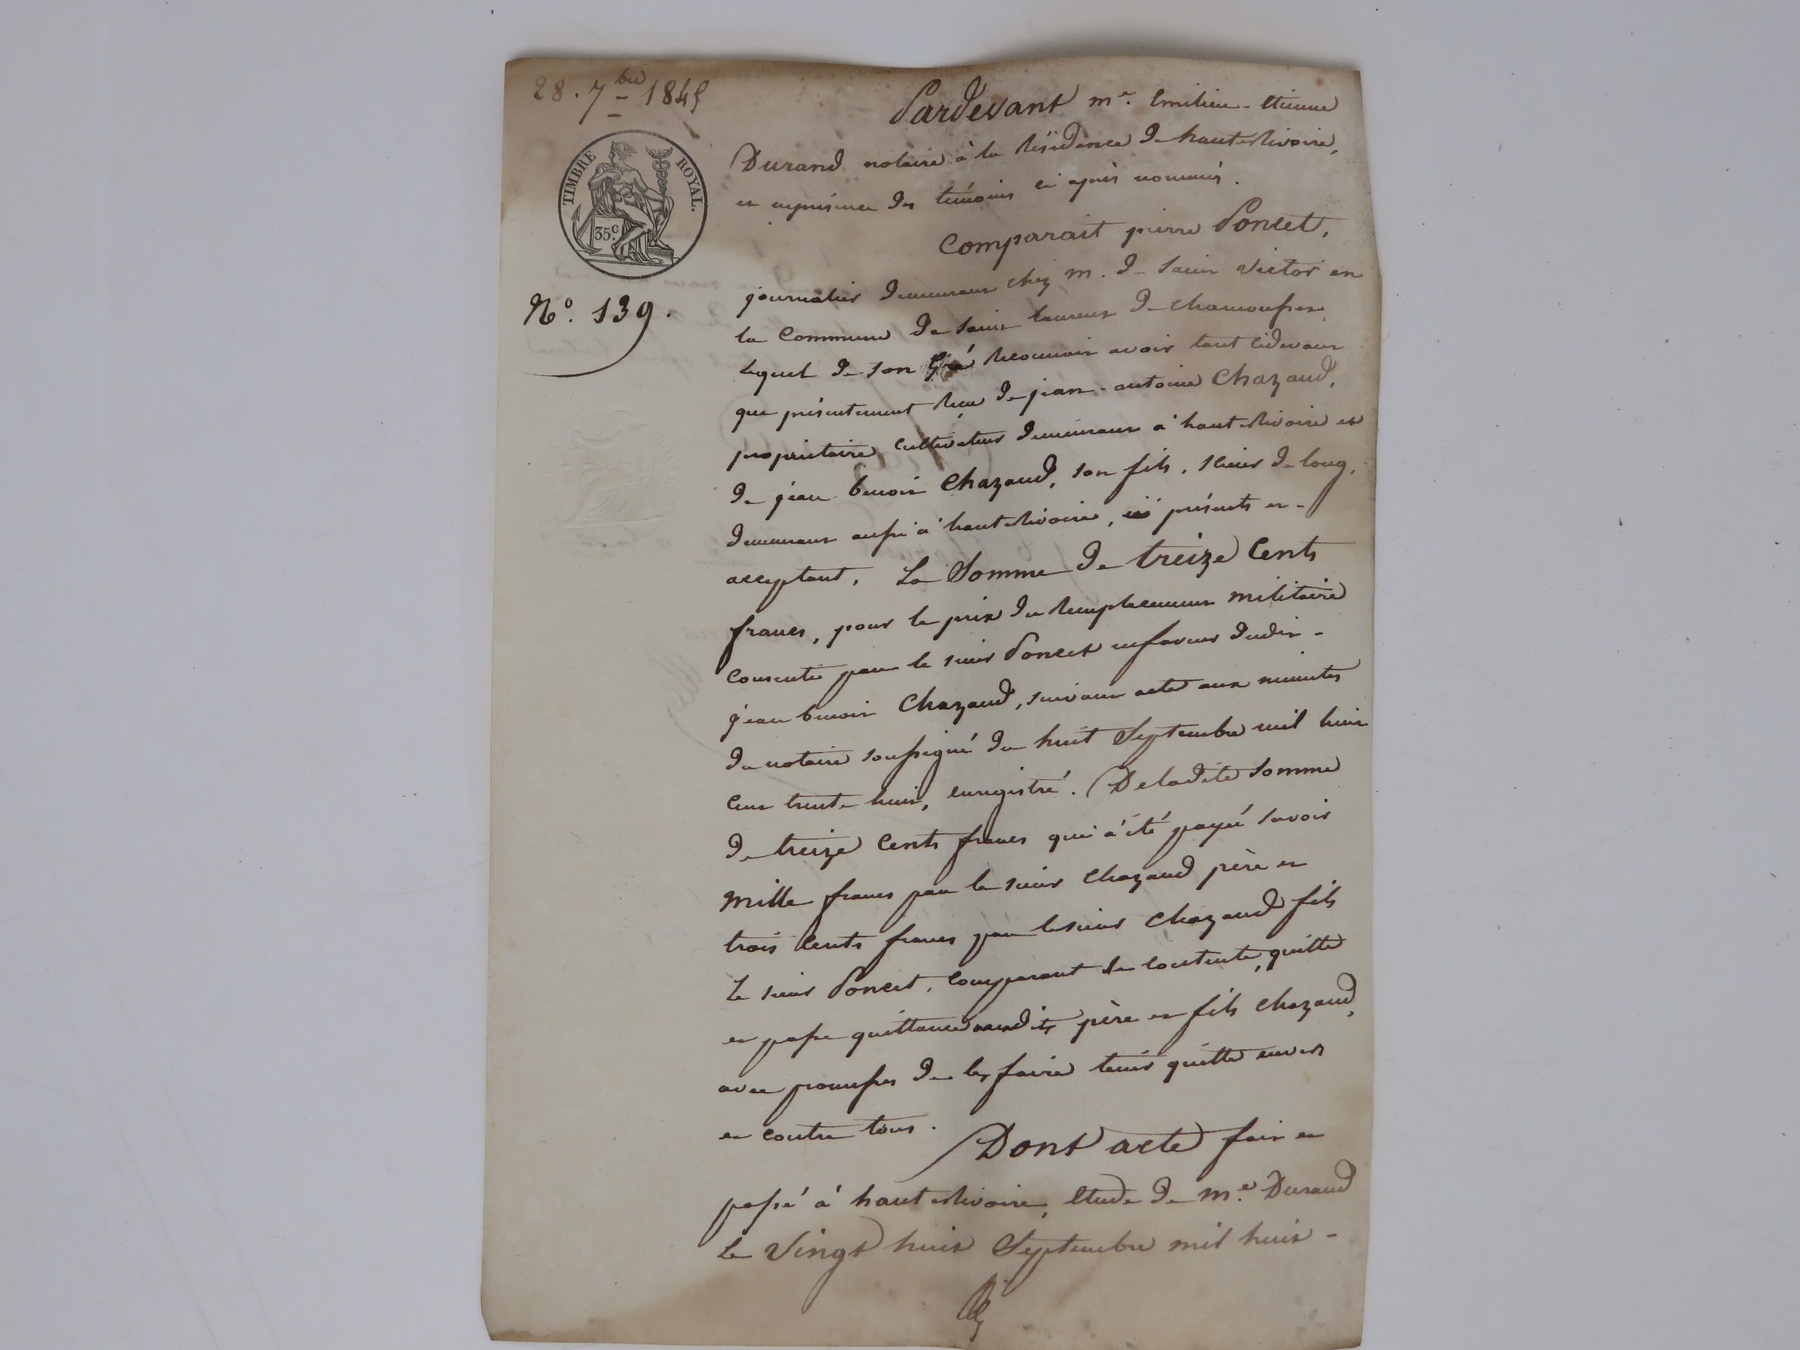 28. 7bre 1845
TIMBRE ROYAL.
35c.
No. 139.
Pardevant me. Emilien-etienne
Durand notaire à la Résidence de haute-Rivoire,
et en présence des témoins ci après nommés.
Comparait pierre Poncet,
journalier demeurant chez m. de Saint Victor en
la Commune de Saint laurent de chamousset,
Lequel de son Gré Reconnait avoir tant cidevant
que présentement Reçu de jean-antoine Chazaud,
propriétaire cultivateur demeurant à haute-Rivoire et
de jean benoit Chazaud, son fils, scieur de long,
demeurant aussi à haute-Rivoire, ici présents et
acceptant, La Somme de treize Cents
francs, pour le prix du Remplacement militaire
consenti par le sieur Poncet en faveur dudit
jean benoit Chazaud, suivant acte aux minutes
du notaire soussigné du huit Septembre mil huit
cent trente huit, enregistré. De ladite Somme
de treize Cents francs qui à été payée savoir
Mille francs par le sieur Chazaud père et
trois Cents francs par le sieur Chazaud fils
Le sieur Poncet, comparant se contente, quitte
et passe quittance auxdits père et fils Chazaud,
avec promesses de les faire tenir quitte envers
et contre tous.
Dont acte fait et
passé à haute-Rivoire, étude de me. Durand
Le Vingt huit Septembre mil huit